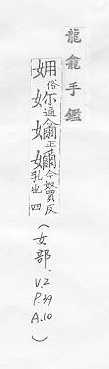 龍龕手鑑
俗妳通正嬭今奴買反乳也四
(女部. V.2 P.39 A.10)